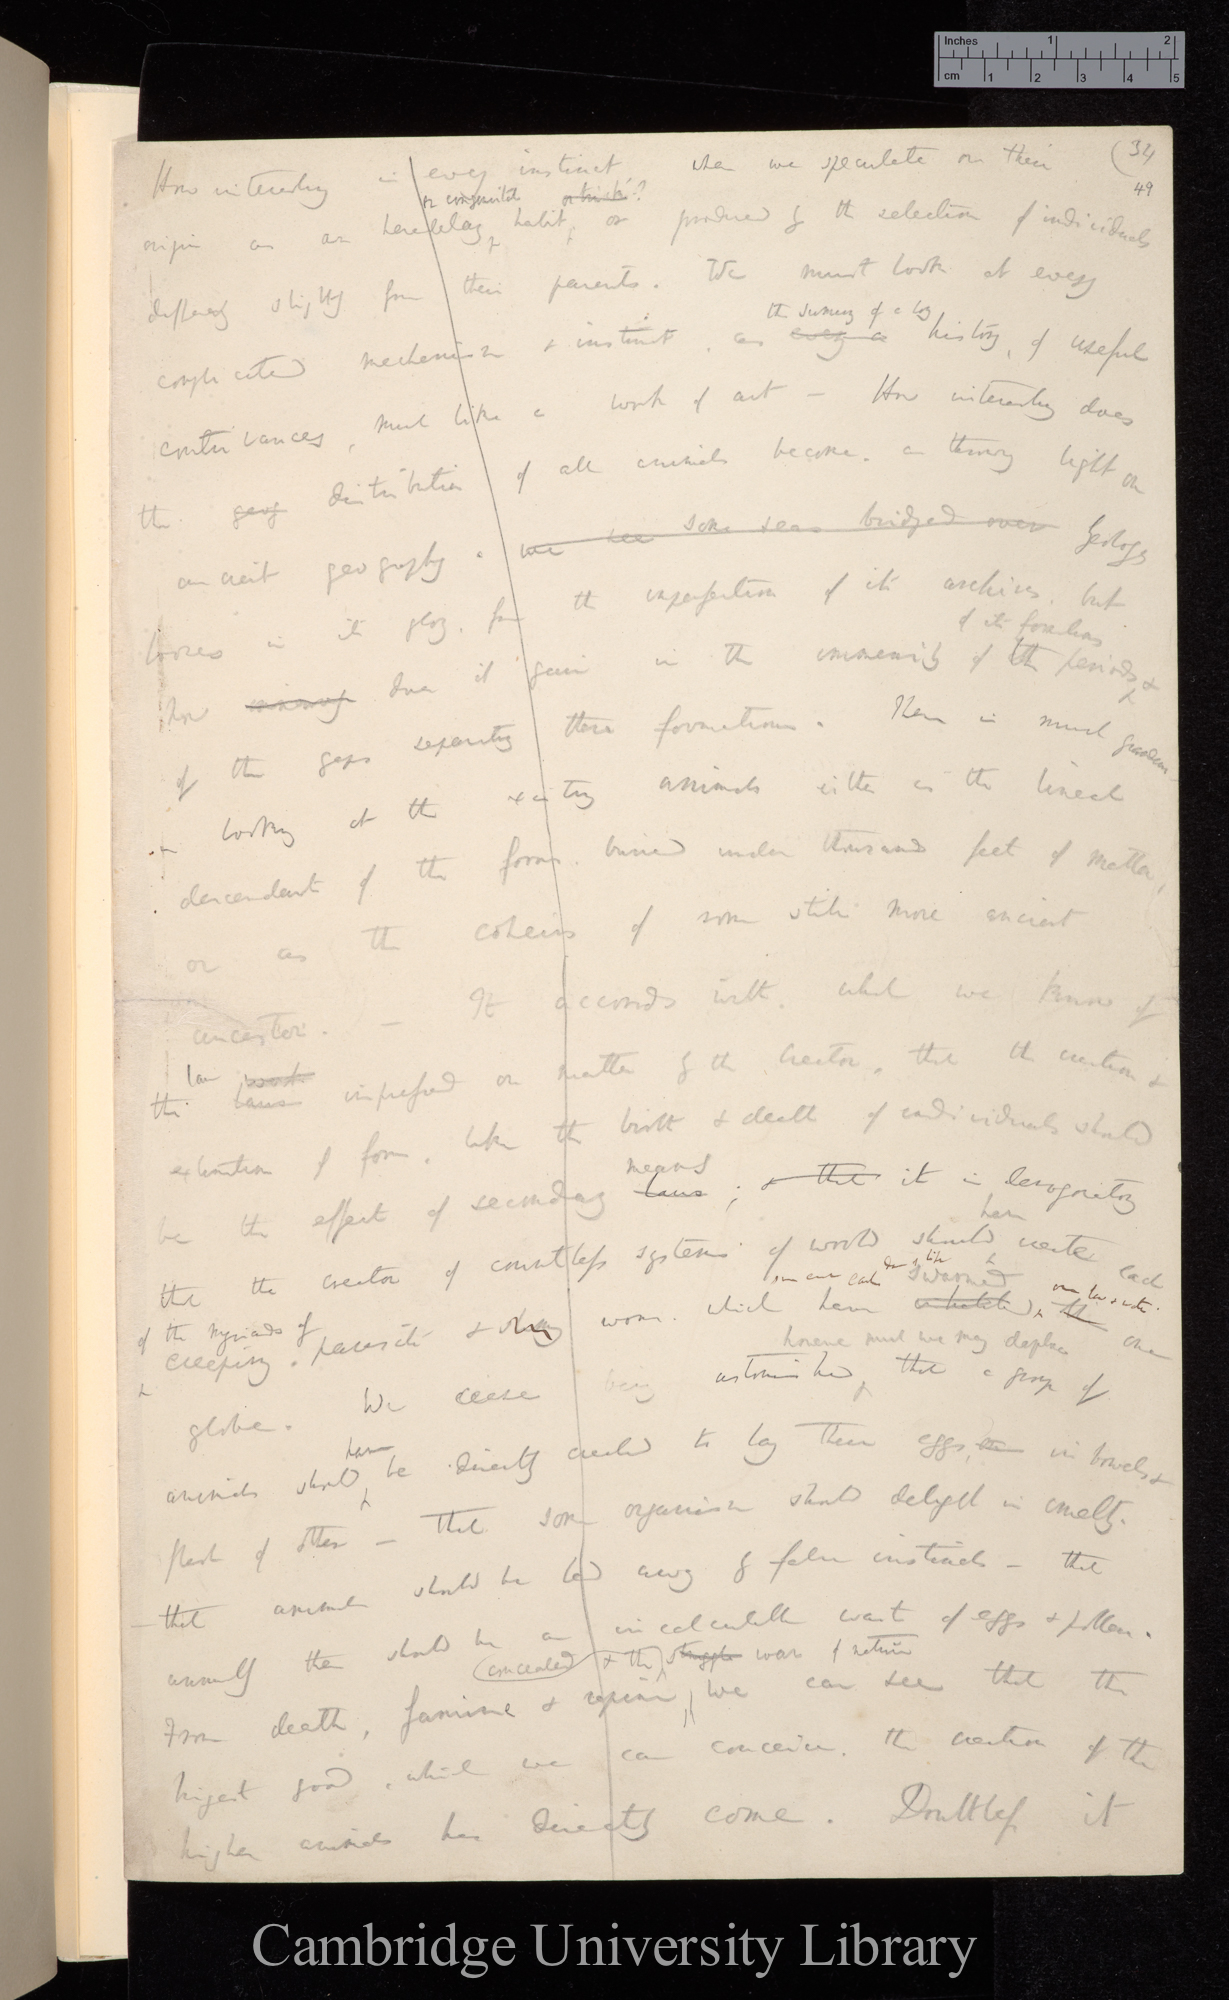 Inches 1 2
cm 1 2 3 4 5
(34
49
How interesting is every instinct, when we speculate on their
or congenital or trick?
origin as an hereditary habit, or produced by the selection of individuals
differing slightly from their parents. We must look at every
the summing of a long
complicated mechanism & instinct, as every a history, of useful
contrivances, much like a work of art — How interesting does
the geog distribution of all animals become, as throwing light on
ancient geography. we see some seas bridged over Geology
looses in its glory, from the imperfection of its archives, but
of its formations
how does it gain in the immensity of the periods &
of the gaps separating these formations. There is much grandeur
in looking at the existing animals either as the lineal
descendants of the forms buried under thousand feet of matter,
or as the coheirs of some still more ancient
ancestor. — It accords with what we know of
law
the laws impressed on matter by the Creator, that the creation &
extinction of forms, like the birth & death of individuals should
means
be the effect of secondary laws; & that it is derogatory
have
that the creator of countless systems of worlds should create each
of the myriads of
swarmed
creeping parasites & slimy worms which have the one
however much we may deplore
globe. We cease being astonished, that a group of
have
animals should be directly created to lay their eggs, in bowels &
flesh of other — that some organisms should delight in cruelty.
— that animals should be led away by false instincts — that
annually there should be an incalculable waste of eggs & pollen.
(concealed & the struggle war of nature
From death, famine & rapine, we can see that the
highest good, which we can conceive, the creation of the
higher animals has directly come. Doubtless it
Cambridge University Library